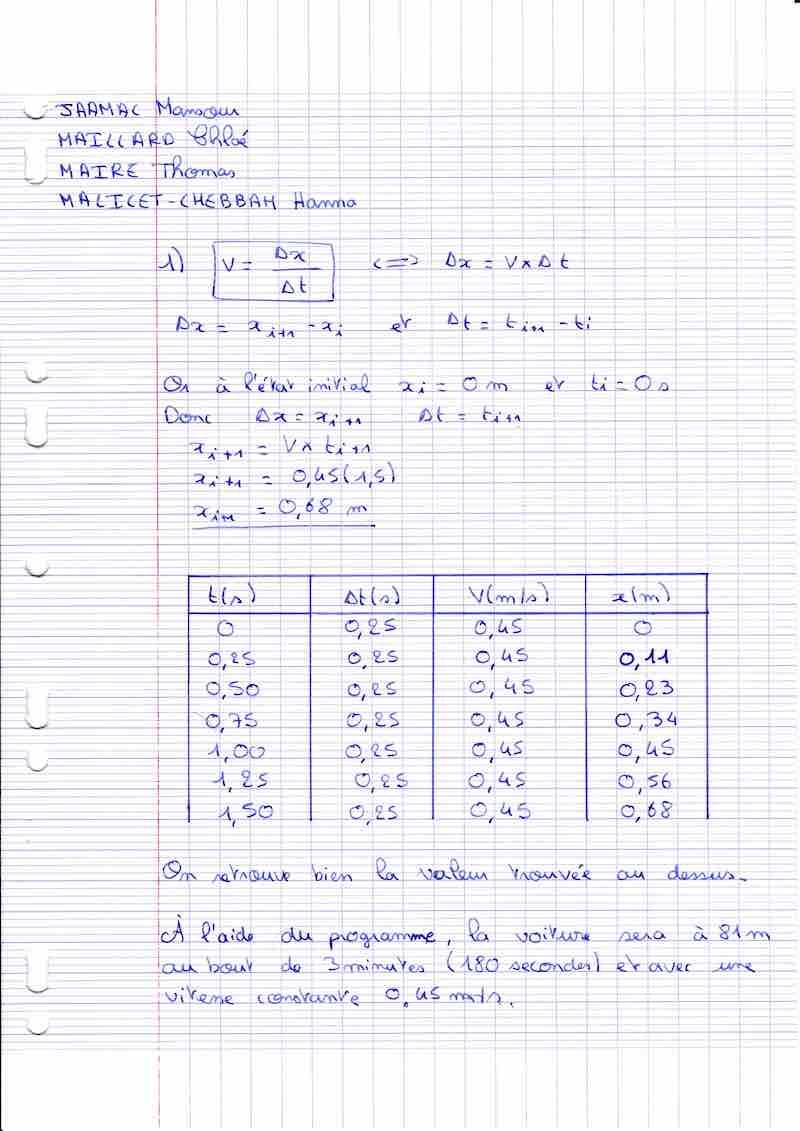 JAAMAC Mansour
MAILLARD Chloé
MAIRE Thomas
MALICET-CHEBBAH Hanna
1) V = Δx / Δt <=> Δx = V × Δt
Δx = xi+1 - xi et Δt = ti+1 - ti
Or à l'état initial xi = 0 m et ti = 0 s
Donc Δx = xi+1 Δt = ti+1
xi+1 = V × ti+1
xi+1 = 0,45(1,5)
xi+1 = 0,68 m
t(s) Δt(s) V(m/s) x(m)
0 0,25 0,45 0
0,25 0,25 0,45 0,11
0,50 0,25 0,45 0,23
0,75 0,25 0,45 0,34
1,00 0,25 0,45 0,45
1,25 0,25 0,45 0,56
1,50 0,25 0,45 0,68
On retrouve bien la valeur trouvée au dessus.
À l'aide du programme, la voiture sera à 81 m
au bout de 3 minutes (180 secondes) et avec une
vitesse constante 0,45 m/s.